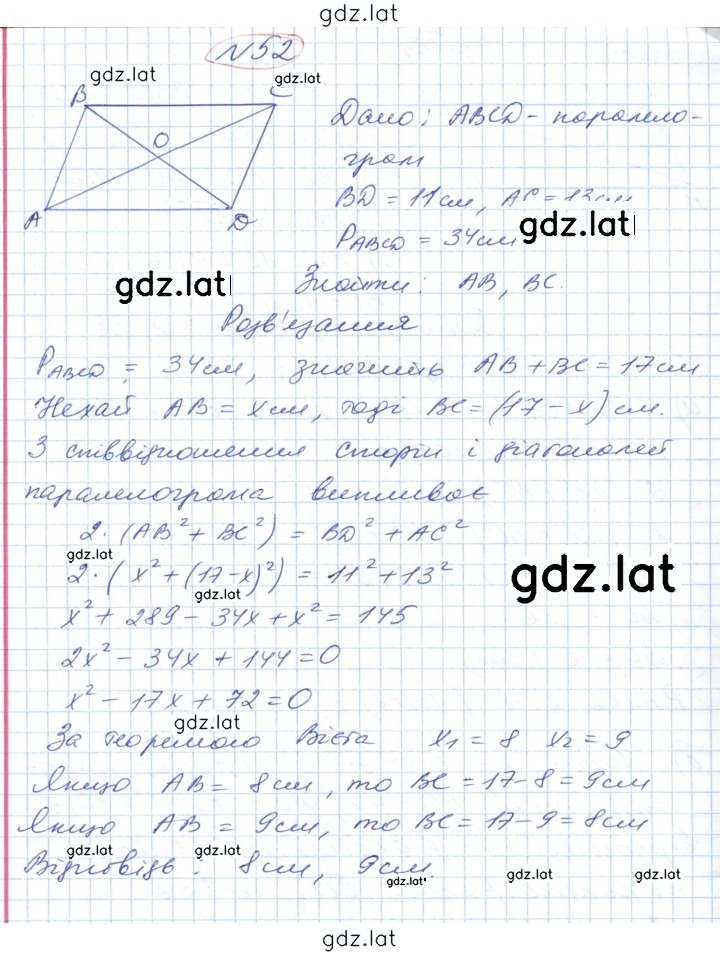 gdz.lat
N52
gdz.lat
gdz.lat
B
C
O
A
D
Дано: ABCD - парелело-
грам
BD = 11 см, AC = 13 см
gdz.lat
P ABCD = 34 см
gdz.lat
Знайти: AB, BC.
Розв'язання
P ABCD = 34 см, значить AB + BC = 17 см
Нехай AB = x см, тоді BC = (17 - x) см.
З співвідношення сторін і діагоналей
паралелограма випливає
2 · (AB² + BC²) = BD² + AC²
gdz.lat
2 · (x² + (17-x)²) = 11² + 13²
gdz.lat
gdz.lat
x² + 289 - 34x + x² = 145
2x² - 34x + 144 = 0
x² - 17x + 72 = 0
gdz.lat
За теоремою Вієта x₁ = 8 x₂ = 9
Якщо AB = 8 см, то BC = 17 - 8 = 9 см
Якщо AB = 9 см, то BC = 17 - 9 = 8 см
gdz.lat
gdz.lat
Відповідь: 8 см, 9 см.
gdz.lat
gdz.lat
gdz.lat
gdz.lat